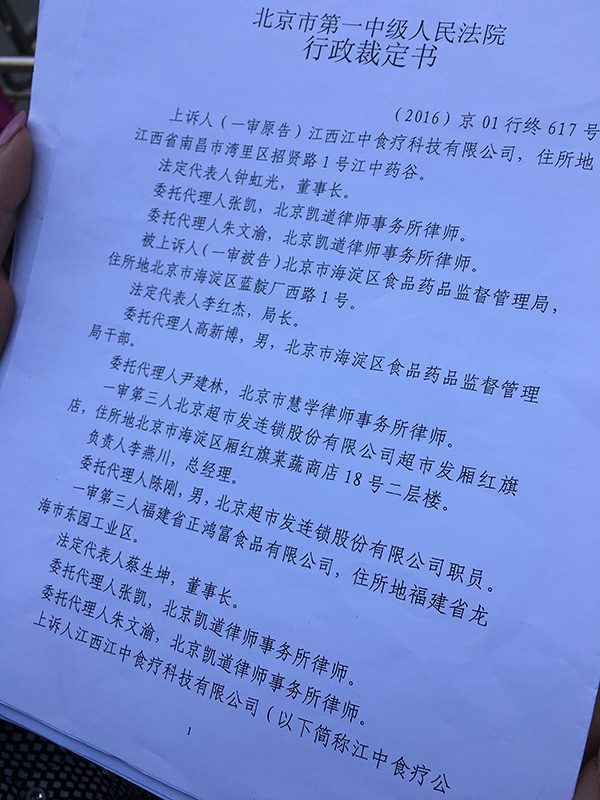 北京市第一中级人民法院
行政裁定书
（2016）京 01 行终 617 号
上诉人（一审原告）江西江中食疗科技有限公司，住所地
江西省南昌市湾里区招贤路 1 号江中药谷。
法定代表人钟虹光，董事长。
委托代理人张凯，北京凯道律师事务所律师。
委托代理人朱文渝，北京凯道律师事务所律师。
被上诉人（一审被告）北京市海淀区食品药品监督管理局，
住所地北京市海淀区蓝靛厂西路 1 号。
法定代表人李红杰，局长。
委托代理人高新博，男，北京市海淀区食品药品监督管理
局干部。
委托代理人尹建林，北京市慧学律师事务所律师。
一审第三人北京超市发连锁股份有限公司超市发厢红旗
店，住所地北京市海淀区厢红旗菜蔬商店 18 号二层楼。
负责人李燕川，总经理。
委托代理人陈刚，男，北京超市发连锁股份有限公司职员。
一审第三人福建省正鸿富食品有限公司，住所地福建省龙
海市东园工业区。
法定代表人蔡生坤，董事长。
委托代理人张凯，北京凯道律师事务所律师。
委托代理人朱文渝，北京凯道律师事务所律师。
上诉人江西江中食疗科技有限公司（以下简称江中食疗公
1